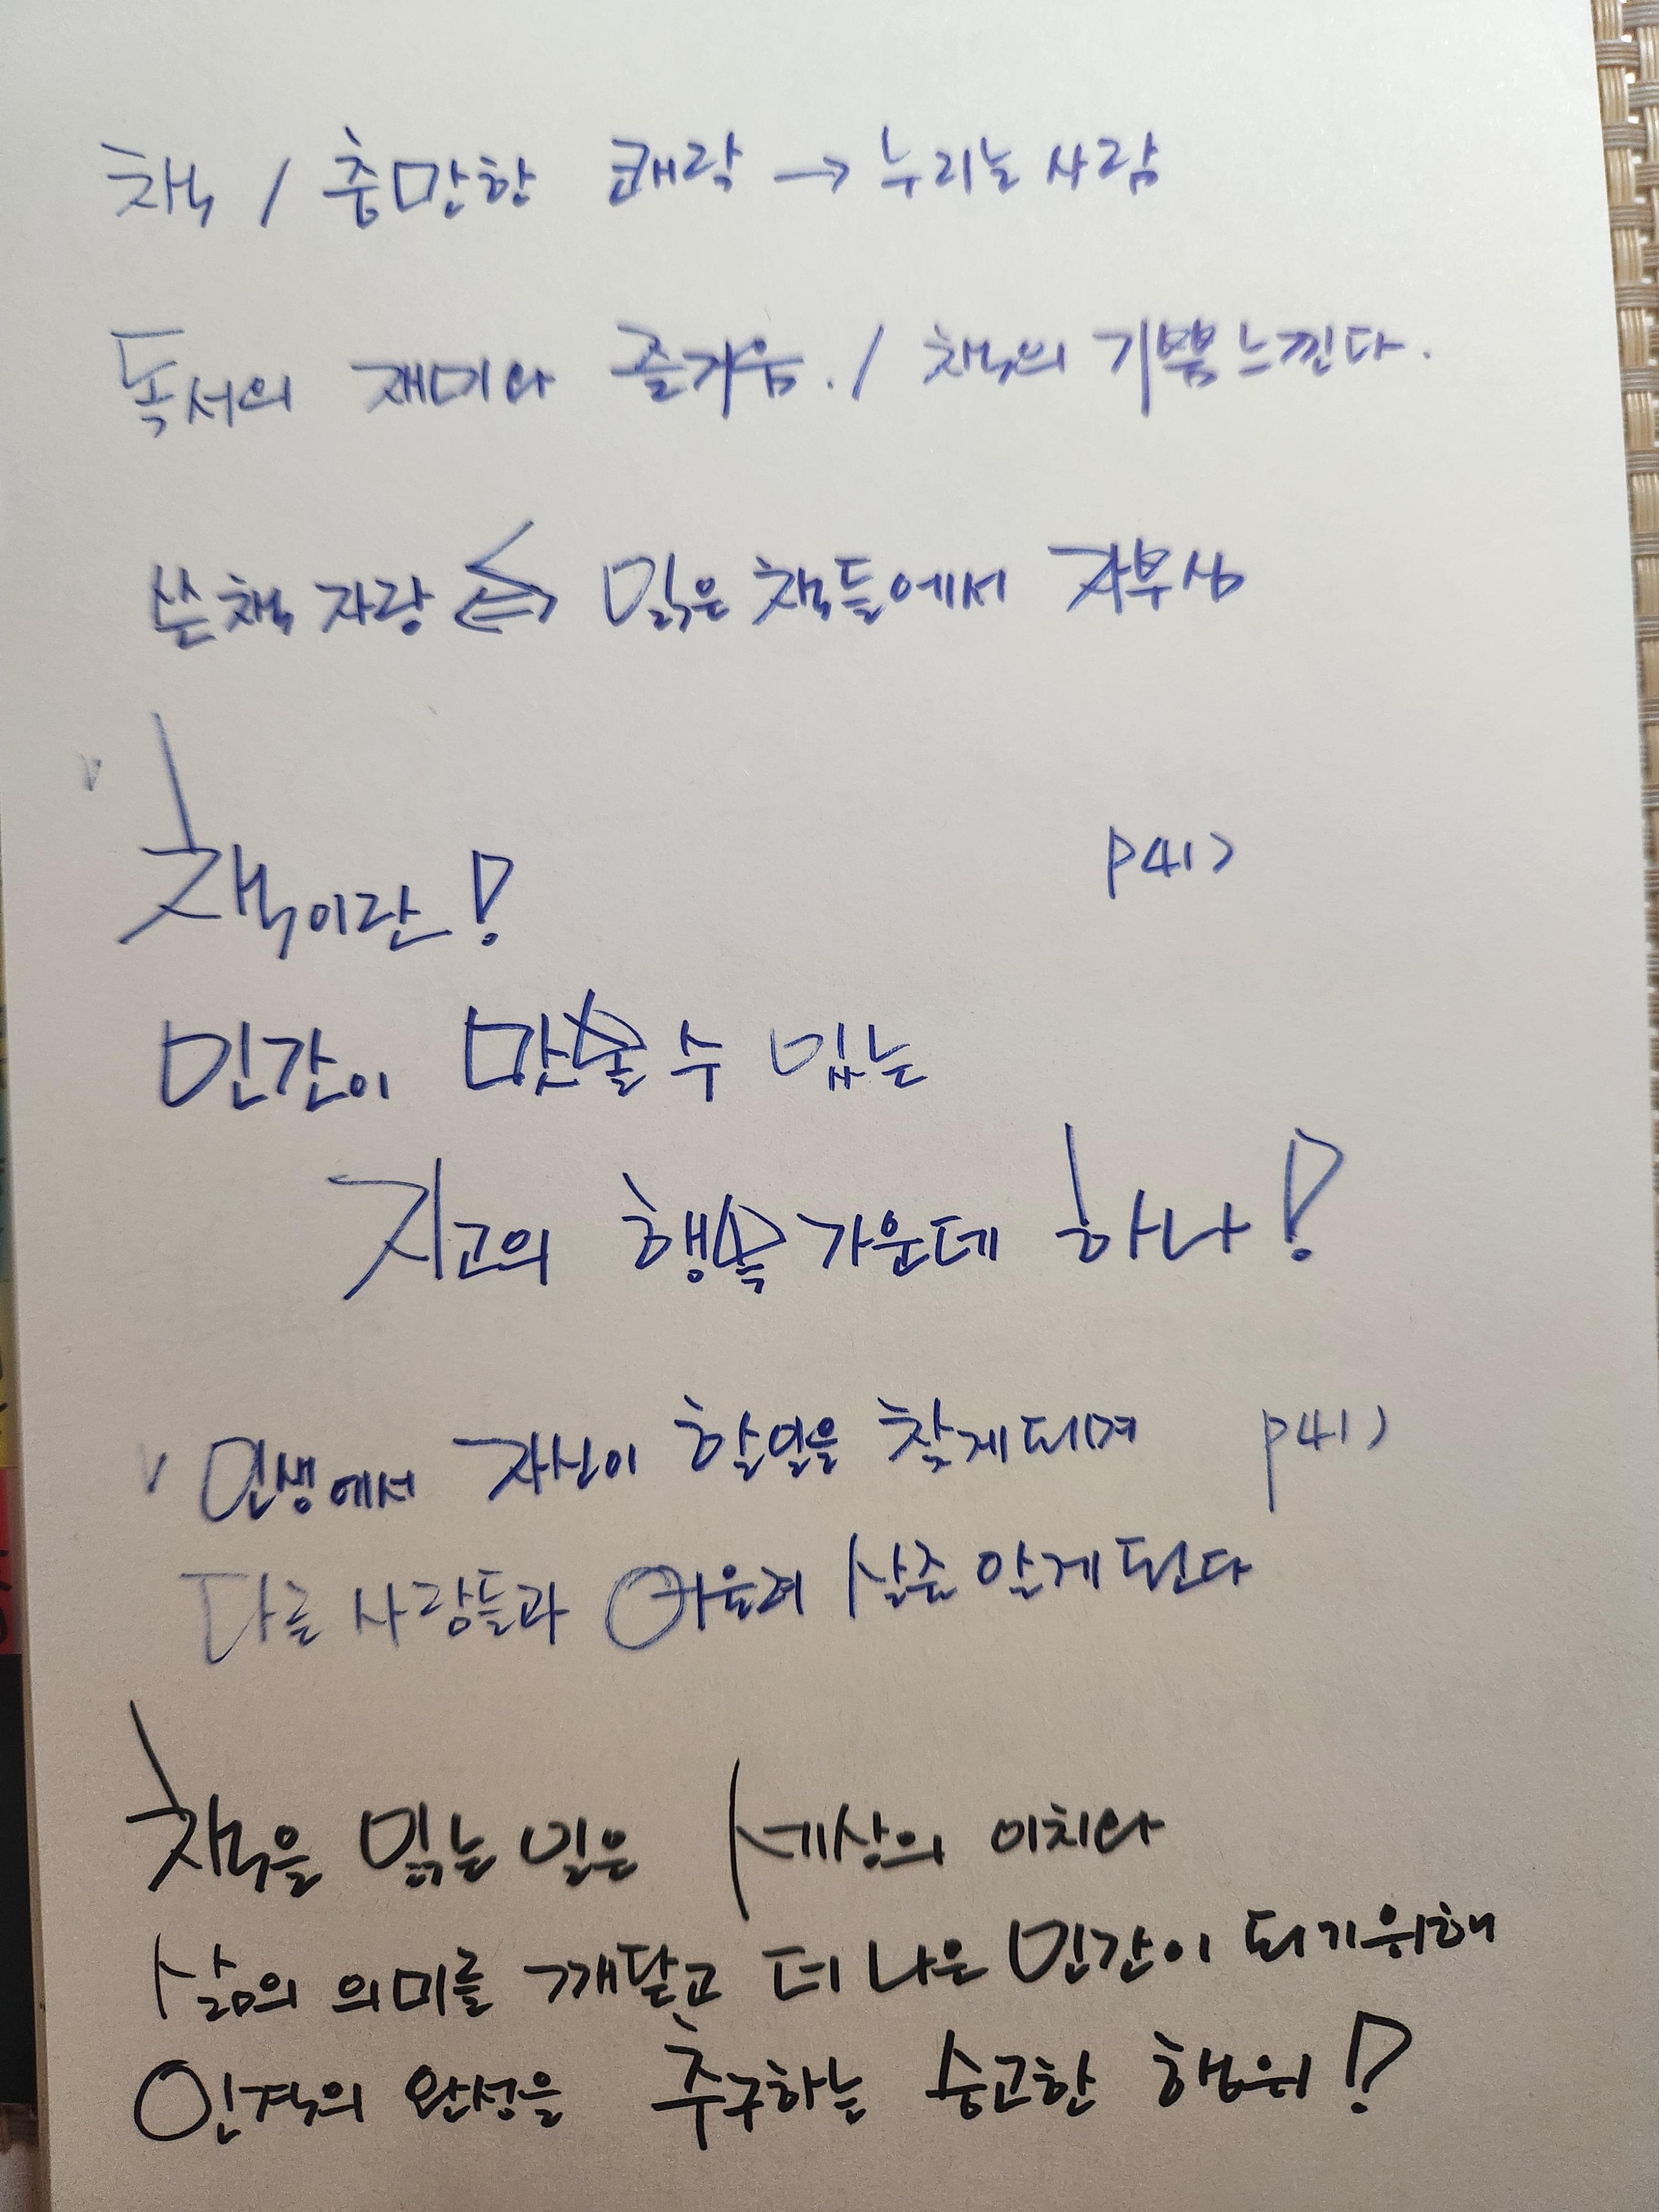 책 / 충만한 쾌락 → 누리는 사람
독서의 재미와 즐거움. / 책의 기쁨 느낀다.
쓴 책 자랑 ⇔ 읽은 책들에서 자부심
책이란! p41>
인간이 맛볼 수 있는
지고의 행복 가운데 하나!
v 인생에서 자신이 할일을 찾게되며 p41>
다른 사람들과 어울려 살줄 알게 된다
책을 읽는 일은 세상의 이치와
삶의 의미를 깨닫고 더 나은 인간이 되기위해
인격의 완성을 추구하는 숭고한 행위!